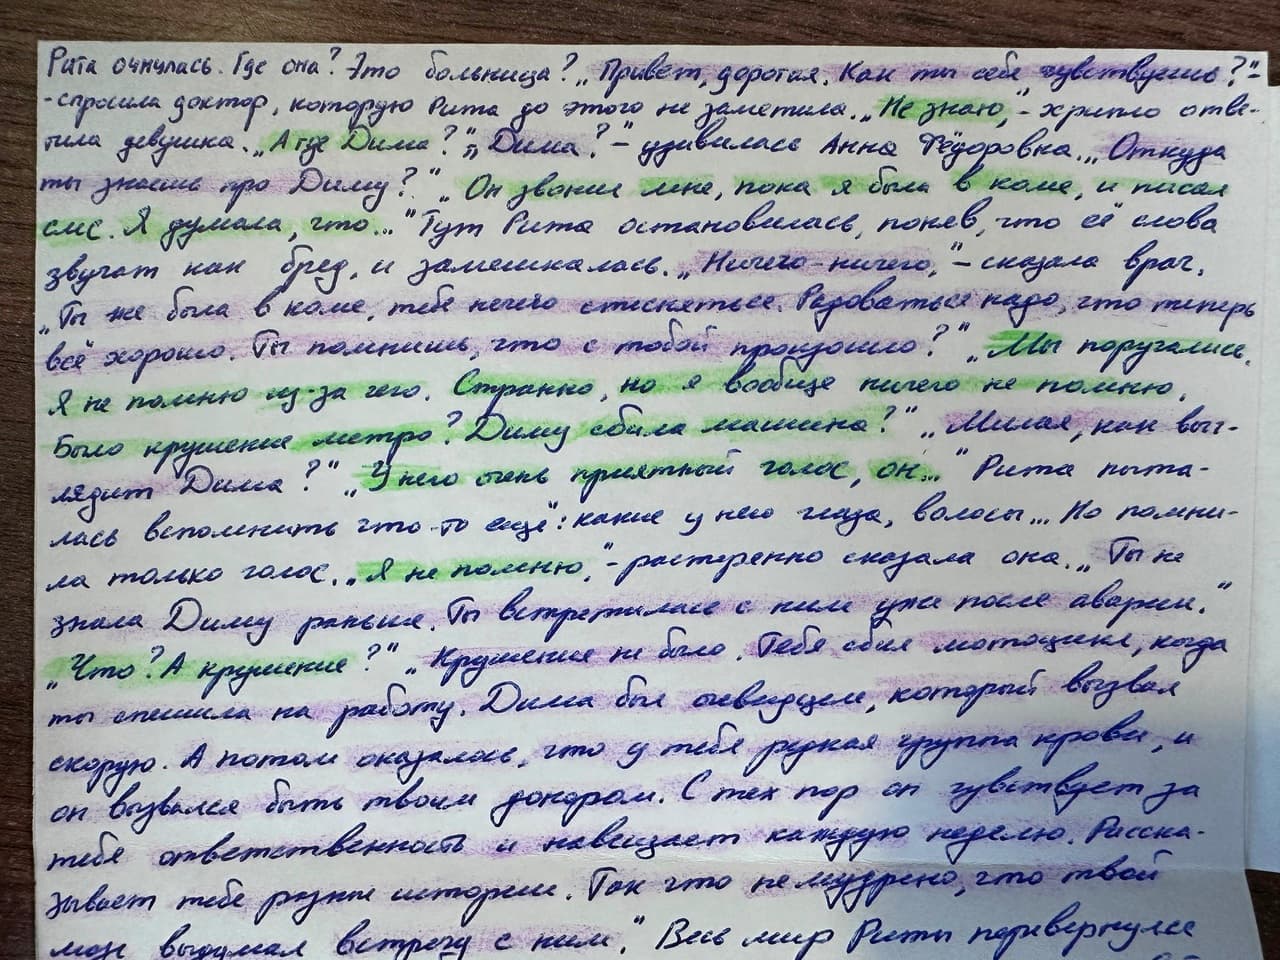 Рита очнулась. Где она? Это больница? „Привет, дорогая. Как ты себя чувствуешь?"-
-спросила доктор, которую Рита до этого не заметила. „Не знаю,"- хрипло отве-
тила девушка. „А где Дима?" „Дима?"- удивилась Анна Фёдоровна. „Откуда
ты знаешь про Диму?" „Он звонил мне, пока я была в коме, и писал
смс. Я думала, что..." Тут Рита остановилась, поняв, что её слова
звучат как бред, и замешкалась. „Ничего-ничего,"- сказала врач.
„Ты же была в коме, тебе нечего стесняться. Радоваться надо, что теперь
всё хорошо. Ты помнишь, что с тобой произошло?" „Мы поругались.
Я не помню из-за чего. Странно, но я вообще ничего не помню.
Было крушение метро? Диму сбила машина?" „Милая, как выг-
лядит Дима?" „У него очень приятный голос, он..." Рита пыта-
лась вспомнить что-то ещё: какие у него глаза, волосы... Но помни-
ла только голос. „Я не помню,"- растеренно сказала она. „Ты не
знала Диму раньше. Ты встретилась с ним уже после аварии."
„Что? А крушение?" „Крушения не было. Тебя сбил мотоцикл, когда
ты спешила на работу. Дима был очевидцем, который вызвал
скорую. А потом оказалось, что у тебя редкая группа крови, и
он вызвался быть твоим донором. С тех пор он чувствует за
тебя ответственность и навещает каждую неделю. Расска-
зывает тебе разные истории. Так что немудрено, что твой
мозг выдумал встречу с ним." Весь мир Риты перевернулся